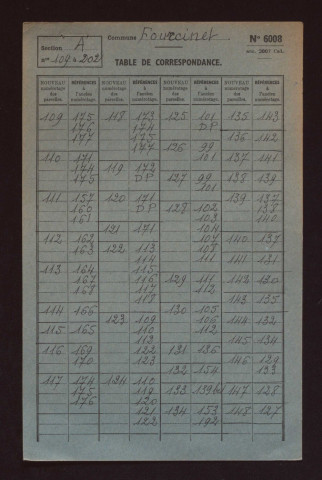 Section A
n° 109 à 202
Commune Fourcinet
N° 6008
TABLE DE CORRESPONDANCE.
NOUVEAU numérotage des parcelles. RÉFÉRENCES à l'ancien numérotage. NOUVEAU numérotage des parcelles. RÉFÉRENCES à l'ancien numérotage. NOUVEAU numérotage des parcelles. RÉFÉRENCES à l'ancien numérotage. NOUVEAU numérotage des parcelles. RÉFÉRENCES à l'ancien numérotage.
109 175
176
177
110 171
174
175
111 157
160
161
112 162
163
113 164
167
168
114 166
115 165
116 169
170
117 174
175
176
118 173
174
175
177
119 172
DP
120 171
DP
121 171
122 113
114
115
116
117
118
123 109
110
112
122
123
124 110
119
120
121
122
125 101
DP
126 99
101
127 99
101
128 102
103
104
107
108
129 111
112
130 105
106
112
131 136
132 154
133 139bis
134 153
192
135 143
136 142
137 141
138 139
139 137
138
140
140 137
141 131
142 130
143 135
144 132
145 134
146 129
133
147 128
148 127